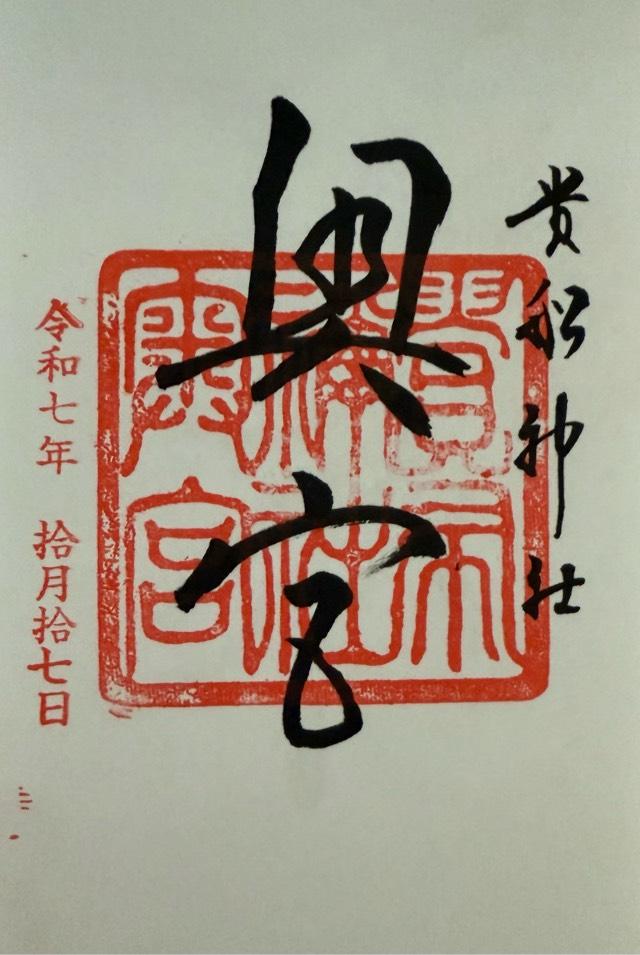 貴船神社
奥宮
貴布
禰社
宮
令和七年 拾月拾七日